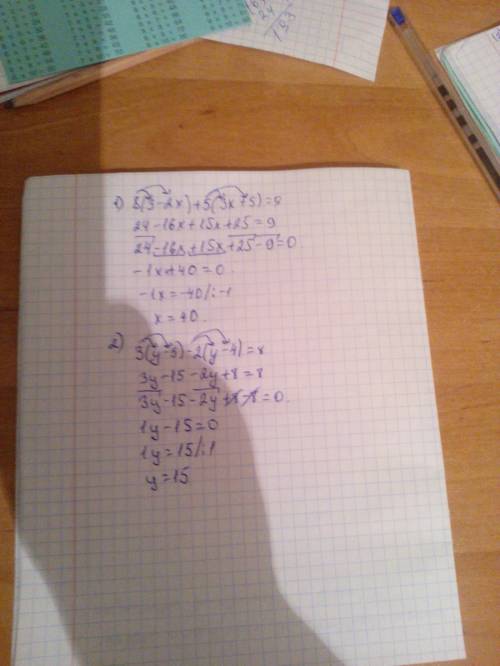 1) 8(3-2x)+5(3x+5)=9
24-16x+15x+25=9
24-16x+15x+25-9=0
-1x+40=0
-1x=-40/:-1
x=40.
2) 3(y-5)-2(y-4)=8
3y-15-2y+8=8
3y-15-2y+8-8=0.
1y-15=0
1y=15/:1
y=15